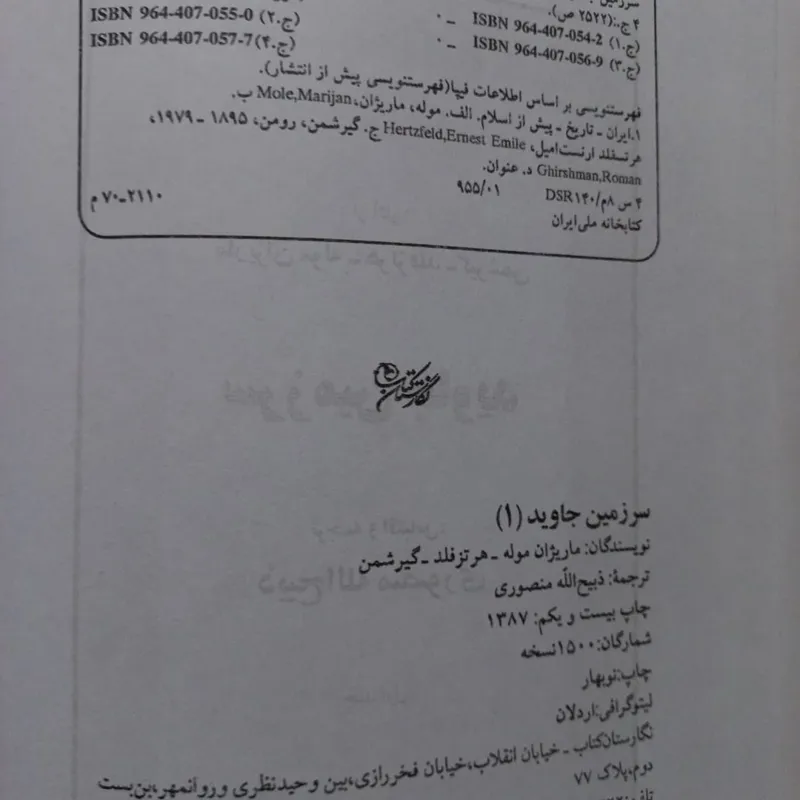 سرزمین
۴ ج.:(۲۵۲۲ ص).
(ج.۱) ISBN 964-407-054-2 ـ ۰ (ج.۲) ISBN 964-407-055-0
(ج.۳) ISBN 964-407-056-9 ـ ۰ (ج.۴) ISBN 964-407-057-7
فهرستنویسی بر اساس اطلاعات فیپا(فهرستنویسی پیش از انتشار).
۱.ایران ـ تاریخ ـ پیش از اسلام. الف. موله، ماریژان، Mole,Marijan ب.
هرتسفلد ارنست‌امیل، Hertzfeld,Ernest Emile ج. گیرشمن، رومن، ۱۸۹۵ ـ ۱۹۷۹،
Ghirshman,Roman د. عنوان.
۴ س ۸م/DSR۱۴۰ ۹۵۵/۰۱
کتابخانه ملی ایران ۲۱۱۰ـ۷۰ م
نگارستان کتاب
سرزمین جاوید (۱)
نویسندگان: ماریژان موله ـ هرتزفلد ـ گیرشمن
ترجمهٔ: ذبیح‌اللّه منصوری
چاپ بیست و یکم: ۱۳۸۷
شمارگان: ۱۵۰۰نسخه
چاپ:نوبهار
لیتوگرافی:اردلان
نگارستان‌کتاب ـ خیابان انقلاب،خیابان فخررازی،بین وحیدنظری و روانمهر،بن‌بست
دوم،پلاک ۷۷